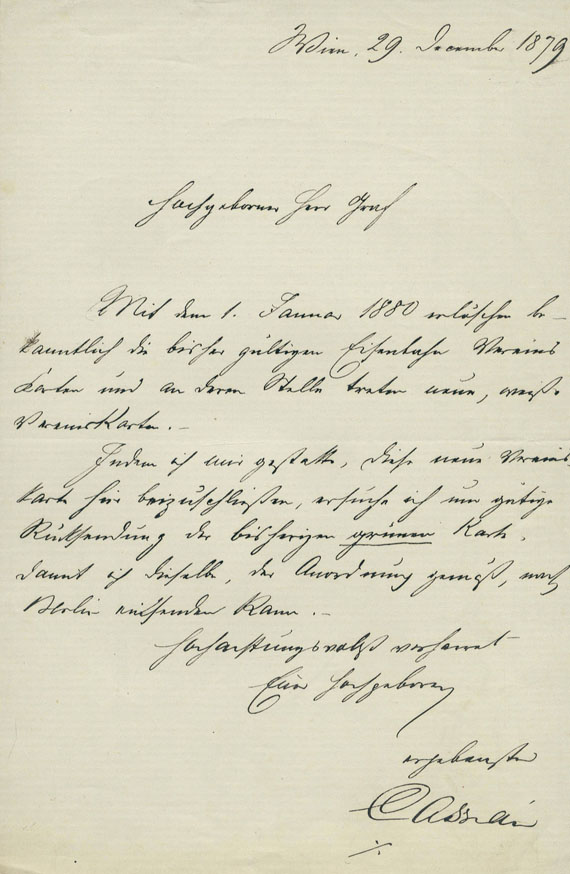 Wien, 29. December 1879
Hochgeborner Herr Graf
Mit dem 1. Januar 1880 erlöschen be-
kanntlich die bisher gültigen Eisenbahn Vereins
Karten und an deren Stelle treten neue, weiße
Vereinskarten. –
Indem ich mir gestatte, diese neue Vereins-
karte hier beizuschließen, ersuche ich um gütige
Rücksendung der bisherigen grünen Karte,
damit ich dieselbe, der Anordnung gemäß, nach
Berlin einsenden kann. –
Hochachtungsvollst verharret
Euer Hochgeboren
ergebenster